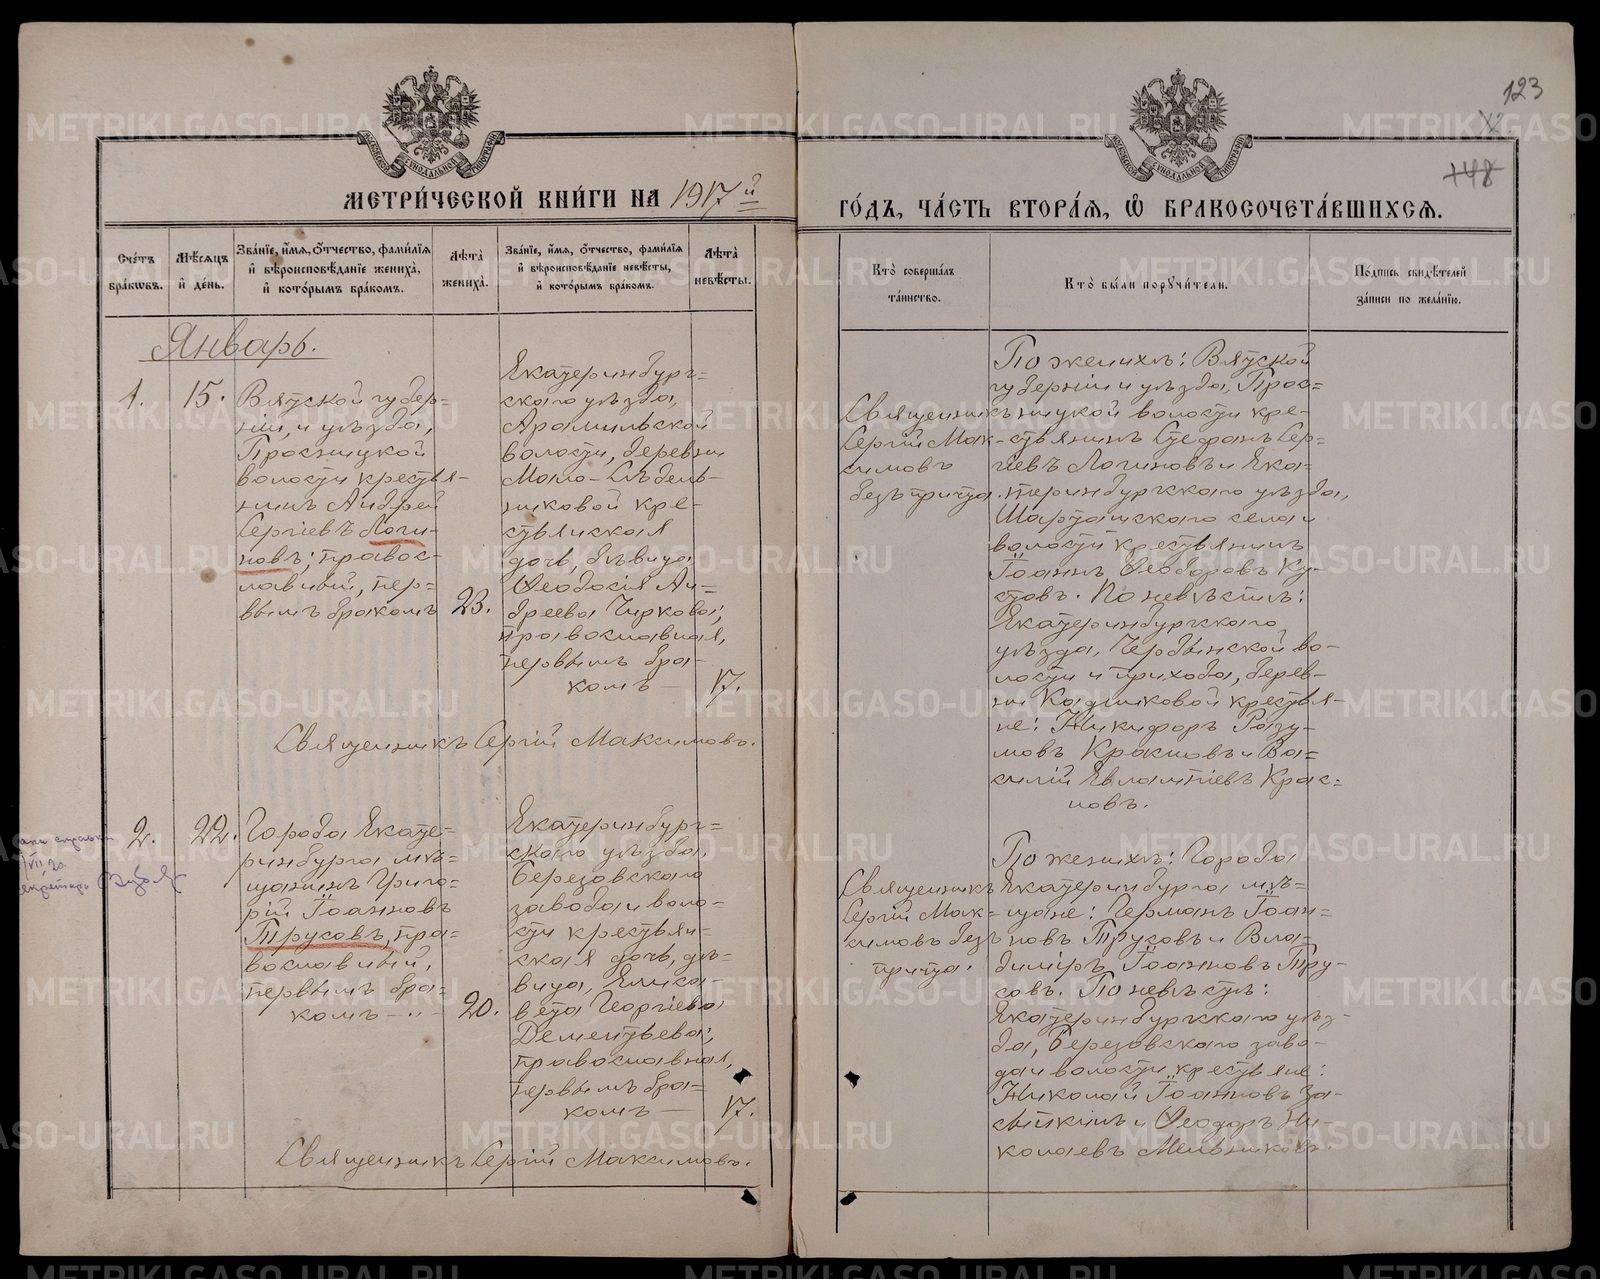 123
148
МОСКОВСКОЙ СИНОДАЛЬНОЙ ТИПОГРАФІИ
МОСКОВСКОЙ СИНОДАЛЬНОЙ ТИПОГРАФІИ
МЕТРИ́ЧЕСКОЙ КНИ́ГИ НА 1917й
ГО́ДЪ, ЧА́СТЬ ВТОРА́Я, Ѡ҆ БРАКОСОЧЕТА́ВШИХСЯ.
Сче́тъ бра́кѡвъ.
Мѣ́сяцъ и҆ де́нь.
Зва́нїе, и҆́мя, ѻ҆́тчество, фами́лїя
и҆ вѣроисповѣ́данїе жениха̀,
и҆ кото́рымъ бра́комъ.
Лѣ́та жениха̀.
Зва́нїе, и҆́мя, ѻ҆́тчество, фами́лїя
и҆ вѣроисповѣ́данїе невѣ́сты,
и҆ кото́рымъ бра́комъ.
Лѣ́та невѣ́сты.
Кто̀ соверша́лъ
та́инство.
Кто̀ бы́ли порꙋчи́тели.
По́дпись свидѣ́телей
за́писи по жела́нїю.
Январь.
1.
15.
Вятской губер-
ніи, и уѣзда,
Просницкой
волости крестья-
нинъ Андрей
Сергіевъ Логи-
новъ; правос-
лавный, пер-
вымъ бракомъ
23.
Екатеринбург-
скаго уѣзда,
Арамильской
волости, деревни
Мало-Сѣдель-
никовой кре-
стьянская
дочь, дѣвица
Ѳеодосія Ан-
дреева Чиркова;
православная,
первымъ бра-
комъ —
17.
Священникъ Сергій Максимовъ.
Священникъ
Сергій Мак-
симовъ
безъ причта.
По женихѣ: Вятской
губерніи и уѣзда, Прос-
ницкой волости кре-
стьянинъ Стефанъ Сер-
гіевъ Логиновъ и Ека-
теринбургскаго уѣзда,
Шарташскаго села и
волости крестьянинъ
Іоаннъ Ѳеодоровъ Ку-
стовъ. По невѣстѣ:
Екатеринбургскаго
уѣзда,
волости и прихода, дерев-
ни Кадниковой крестья-
не: Никифоръ Разу-
мовъ Красновъ и Ва-
силій Евлампіевъ Крас-
новъ.
2.
22.
Города Екате-
ринбурга мѣ-
щанинъ Григо-
рій Іоанновъ
Трусовъ, пра-
вославный,
первымъ бра-
комъ — " —
20.
Екатеринбург-
скаго уѣзда,
Березовскаго
завода и воло-
сти крестьян-
ская дочь, дѣ-
вица, Елиса-
вета Георгіева
Дементьева;
православная,
первымъ бра-
комъ —
17.
Священникъ Сергій Максимовъ.
Священникъ
Сергій Мак-
симовъ безъ
причта.
По женихѣ: Города
Екатеринбурга мѣ-
щане: Германъ Іоан-
новъ Трусовъ и Вла-
диміръ Іоанновъ Тру-
совъ. По невѣстѣ:
Екатеринбургскаго уѣз-
да, Березовскаго заво-
да и волости крестьяне:
Николай Іоанновъ За-
сыпкинъ и Ѳеодоръ Ни-
колаевъ Мельниковъ.
METRIKI.GASO-URAL.RU